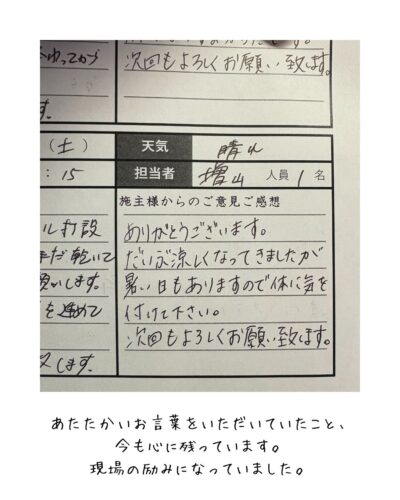 ゆってから
次回もよろしくお願い致します。
す。
(土)
天気
晴れ
:15
担当者
増山
人員 1 名
施主様からのご意見ご感想
ル打設
ありがとうございます。
まだ乾いて
だいぶ涼しくなってきましたが
暑い日もありますので体に気を
を進めて
付けて下さい。
次回もよろしくお願い致します。
します。
あたたかいお言葉をいただいていたこと、
今も心に残っています。
現場の励みになっていました。